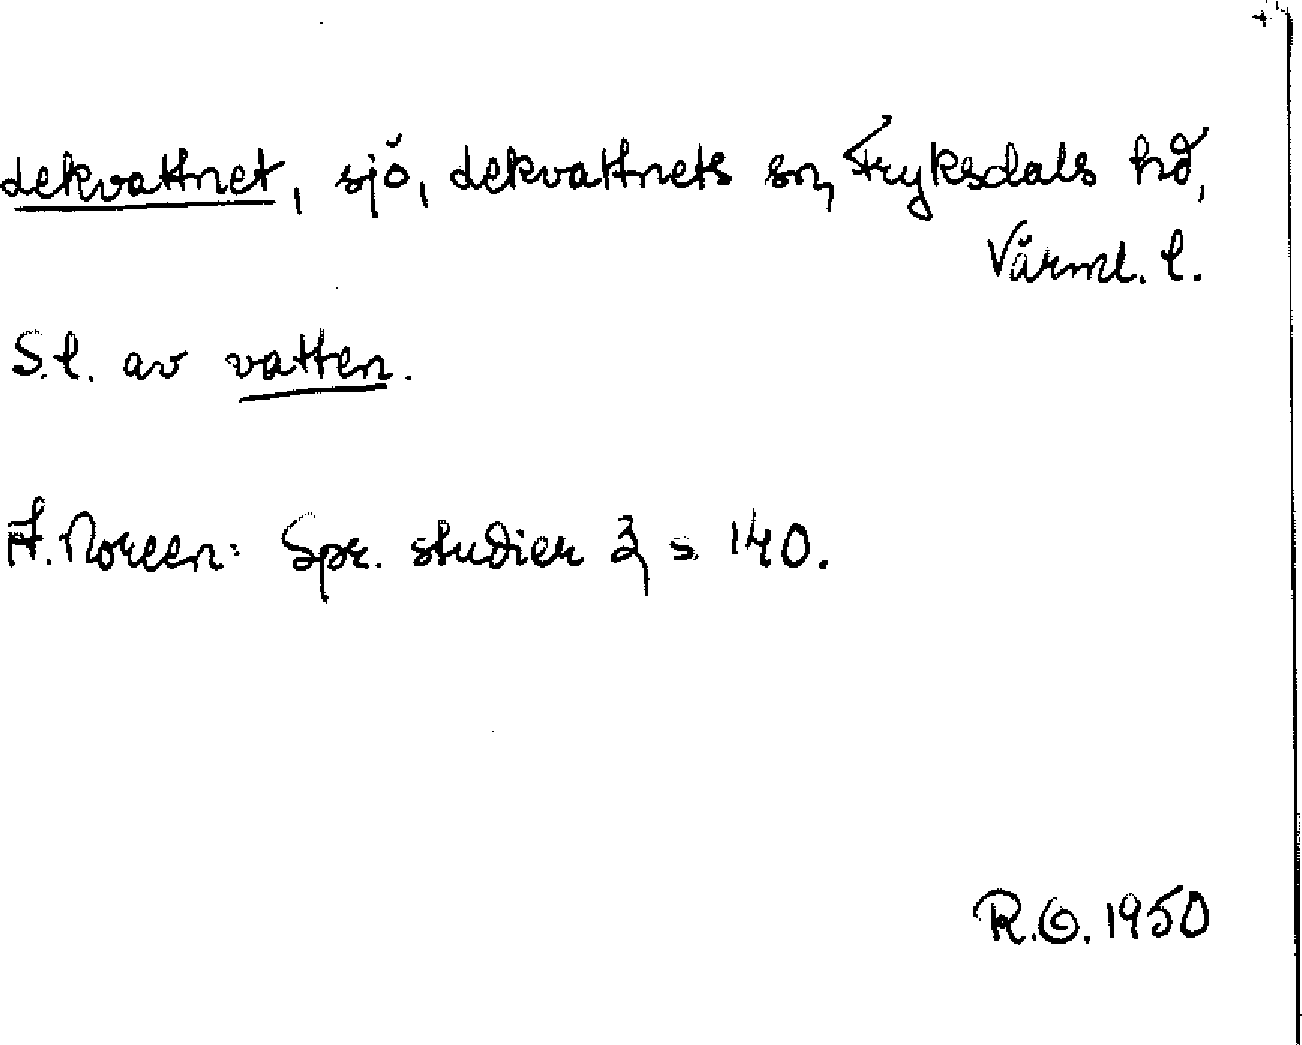 Lekvattnet, sjö, Lekvattnets sn, Fryksdals hd,
Värml. l.
S.l. av vatten.
A. Noreen: Spr. studier 3, s 140.
R.O. 1950